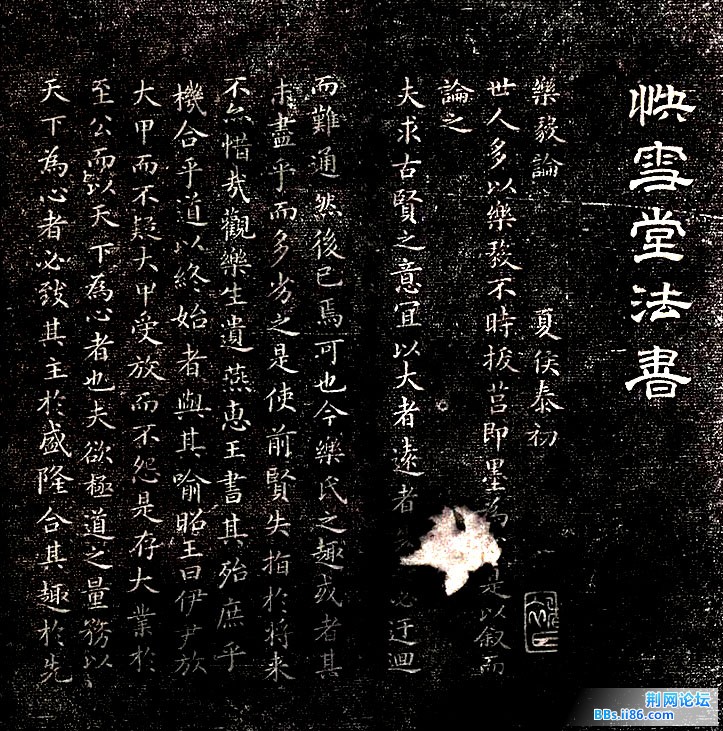 快雪堂法書
樂毅論 夏侯泰初
世人多以樂毅不時拔莒即墨為是以叙而
論之
夫求古賢之意宜以大者遠者必迂迴
而難通然後已焉可也今樂氏之趣或者其
未盡乎而多劣之是使前賢失指於将来
不亦惜哉觀樂生遺燕惠王書其殆庶乎
機合乎道以終始者與其喻昭王曰伊尹放
大甲而不疑大甲受放而不怨是存大業於
至公而以天下為心者也夫欲極道之量務以
天下為心者必致其主於盛隆合其趣於先
荆网论坛
BBs.ii86.com